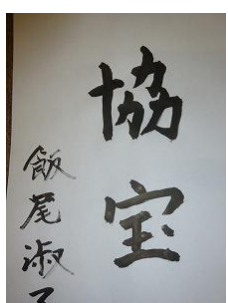 協宝
飯尾淑子